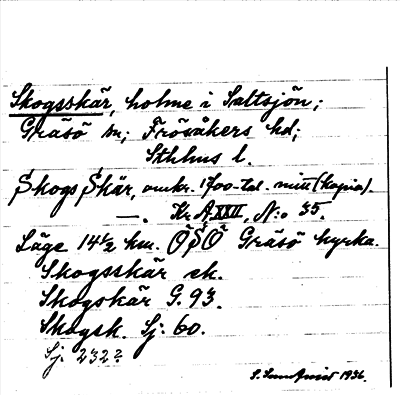 Skogsskär, holme i Saltsjön;
Gräsö sn; Frösåkers hd;
Sthlms l.
Skogs Skär, omkr. 1700-tal. mitt (kopia).
—. Kr. A. XXII, N:o 35.
Läge 14 1/2 km. ÖSÖ Gräsö kyrka.
Skogsskär ek.
Skogskär G. 93.
Skogsk. Sj: 60.
Sj. 232?
1936.